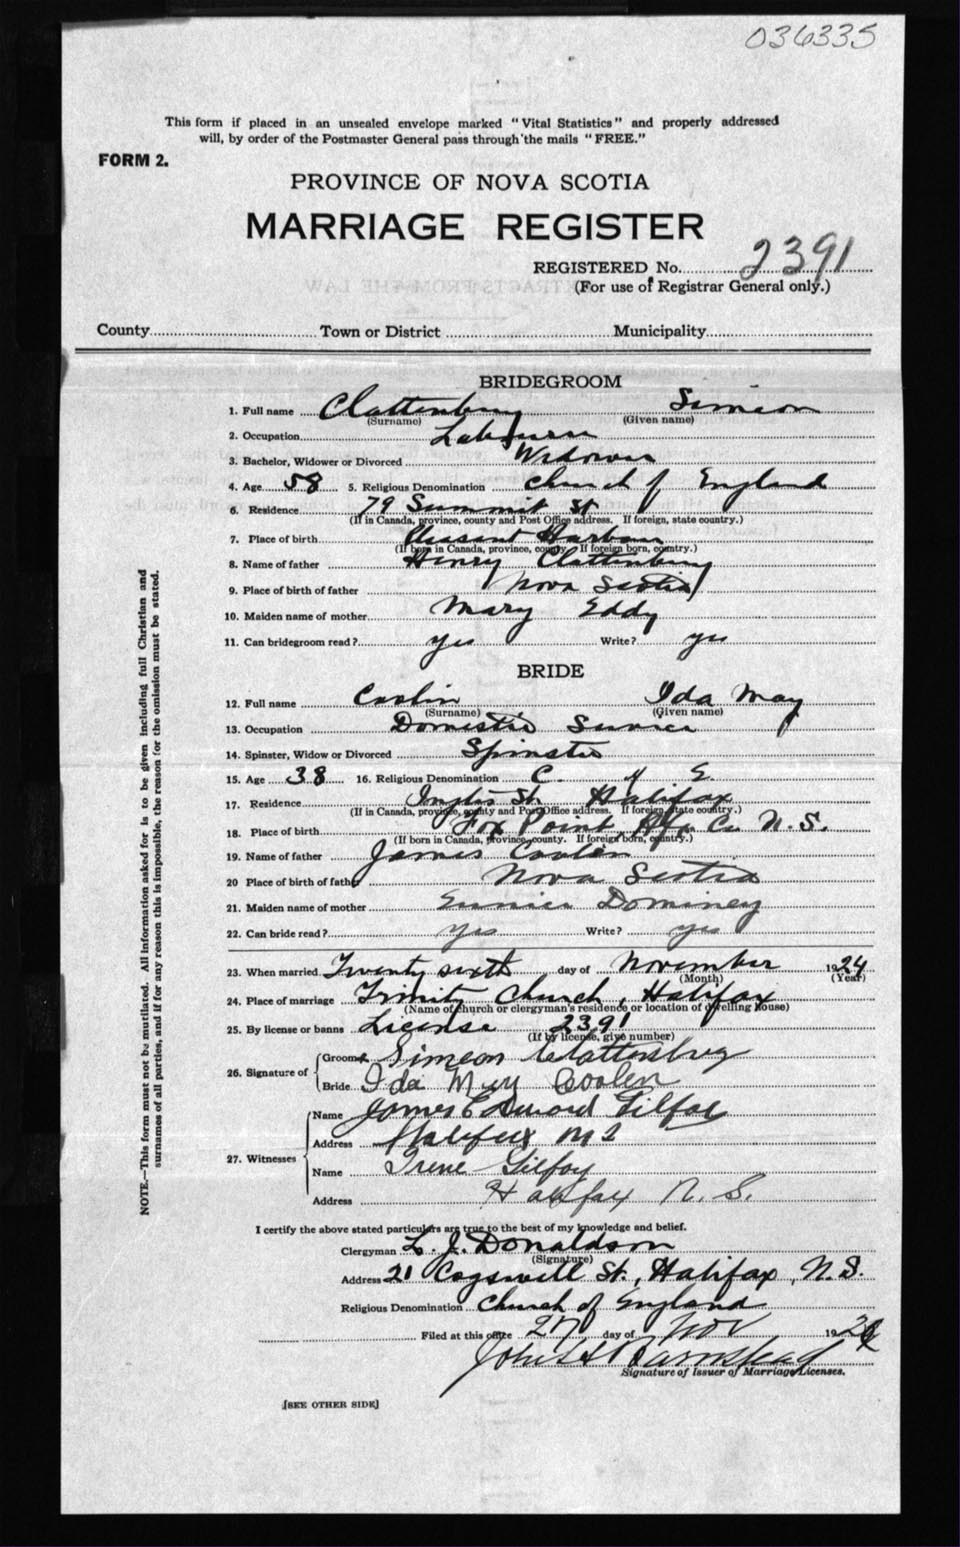 036335
This form if placed in an unsealed envelope marked "Vital Statistics" and properly addressed
will, by order of the Postmaster General pass through the mails "FREE."
FORM 2.
PROVINCE OF NOVA SCOTIA
MARRIAGE REGISTER
REGISTERED No. 2391
(For use of Registrar General only.)
County Town or District Municipality
BRIDEGROOM
1. Full name Clattenburg Simeon
(Surname) (Given name)
2. Occupation Labourer
3. Bachelor, Widower or Divorced Widower
4. Age 58 5. Religious Denomination Church of England
6. Residence 79 Summit St
(If in Canada, province, county and Post Office address. If foreign, state country.)
7. Place of birth Pleasant Harbour
(If born in Canada, province, county. If foreign born, country.)
8. Name of father Henry Clattenburg
9. Place of birth of father Nova Scotia
10. Maiden name of mother Mary Eddy
11. Can bridegroom read? yes Write? yes
BRIDE
12. Full name Coolin Ida May
(Surname) (Given name)
13. Occupation Domestic Service
14. Spinster, Widow or Divorced Spinster
15. Age 38 16. Religious Denomination C. of E
17. Residence Inglis St. Halifax
(If in Canada, province, county and Post Office address. If foreign, state country.)
18. Place of birth Fox Point Hfx Co. N.S.
(If born in Canada, province, county. If foreign born, country.)
19. Name of father James Coolen
20 Place of birth of father Nova Scotia
21. Maiden name of mother Eunice Dominey
22. Can bride read? yes Write? yes
23. When married Twenty sixth day of November 1924
(Month) (Year)
24. Place of marriage Trinity Church, Halifax
(Name of church or clergyman's residence or location of dwelling house)
25. By license or banns License 2391
(If by license, give number)
26. Signature of Groom Simeon Clattenburg
Bride Ida May Coolen
27. Witnesses Name James Edward Gilfoy
Address Halifax NS
Name Irene Gilfoy
Address Halifax N.S.
I certify the above stated particulars are true to the best of my knowledge and belief.
Clergyman L. J. Donaldson
(Signature)
Address 21 Cogswell St., Halifax, N.S.
Religious Denomination Church of England
Filed at this office 27 day of Nov 1924
John H Barnstead
Signature of Issuer of Marriage Licenses.
[SEE OTHER SIDE]
NOTE.—This form must not be mutilated. All information asked for is to be given including full Christian and
surnames of all parties, and if for any reason this is impossible, the reason for the omission must be stated.